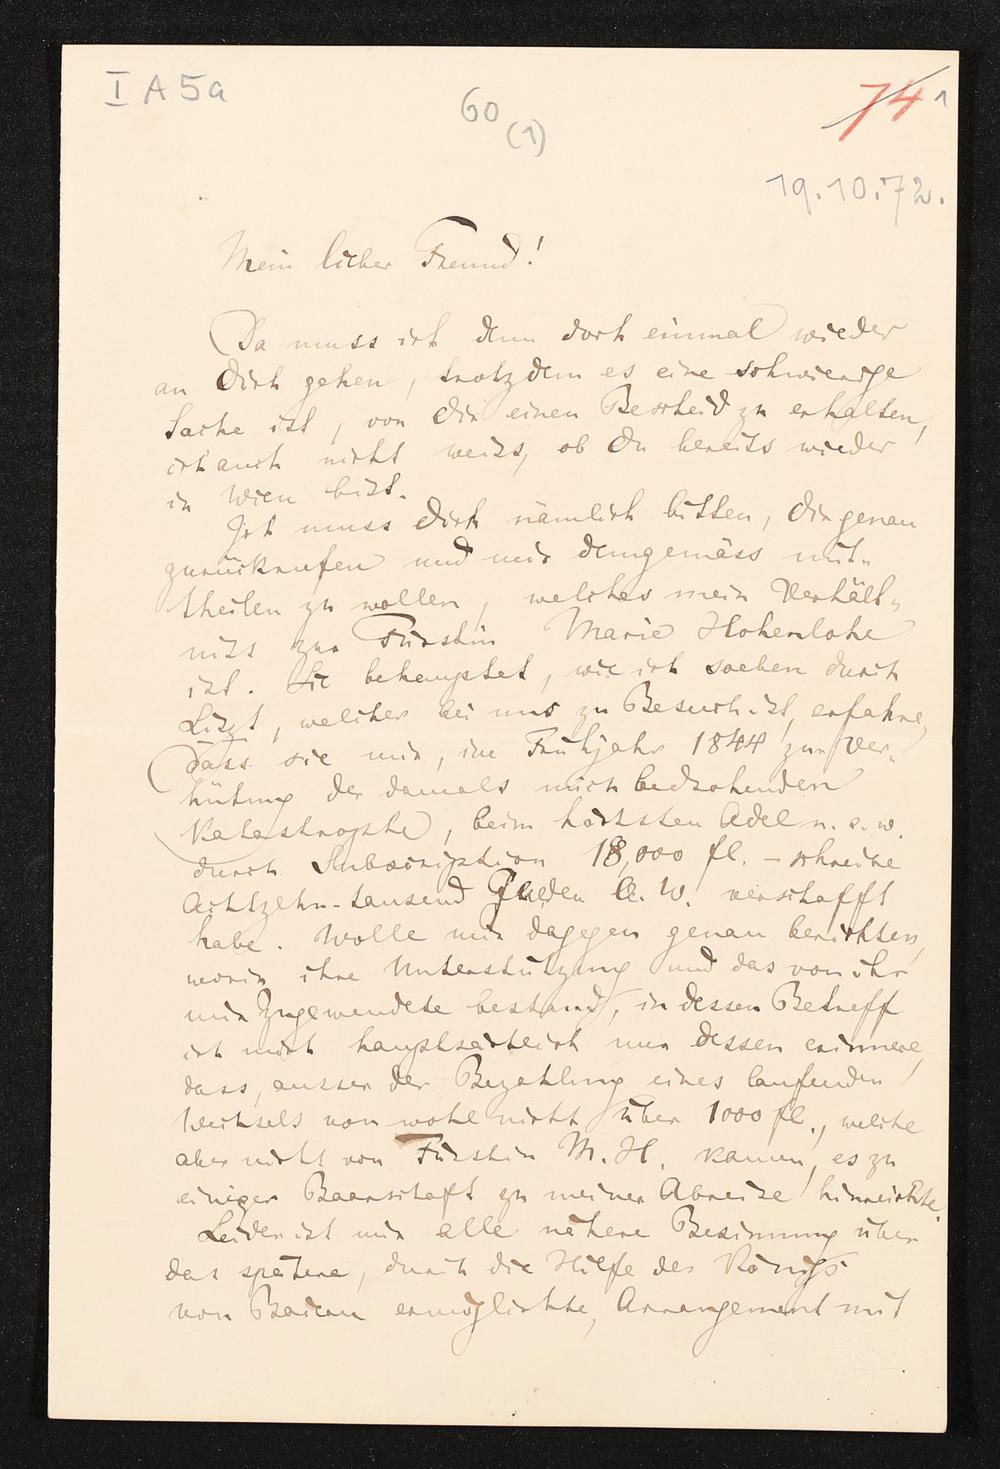 I A 5a
60
(1)
74 1
19.10.72.
Mein lieber Freund!
Da muss ich denn doch einmal wieder
an Dich gehen, trotzdem es eine schwierige
Sache ist, von Dir einen Bescheid zu erhalten,
ich auch nicht weiss, ob Du bereits wieder
in Wien bist.
Ich muss Dich nämlich bitten, Dir genau
zurückrufen und mir demgemäss mit-
theilen zu wollen, welches mein Verhält-
niss zur Fürstin Marie Hohenlohe
ist. Sie behauptet, wie ich soeben durch
Liszt, welcher bei uns zu Besuch ist, erfahre,
dass sie mir, im Frühjahr 1844 zur Ver-
hütung der damals mich bedrohenden
Katastrophe, beim höchsten Adel u. s. w.
durch Subscription 18,000 fl. – schreibe
Achtzehn-tausend Gulden Ö. W. verschafft
habe. Wolle mir dagegen genau berichten,
worin ihre Unterstützung und das von ihr
mir Zugewendete bestand, in dessen Betreff
ich mich hauptsächlich nur dessen erinnere,
dass, ausser der Bezahlung eines laufenden
Wechsels von wohl nicht über 1000 fl., welche
aber nicht von Fürstin M. H. kamen, es zu
einiger Baarschaft zu meiner Abreise hinreichte.
Leider ist mir alle nähere Besinnung über
das spätere, durch die Hilfe des Königs
von Baiern ermöglichte, Arrangement mit